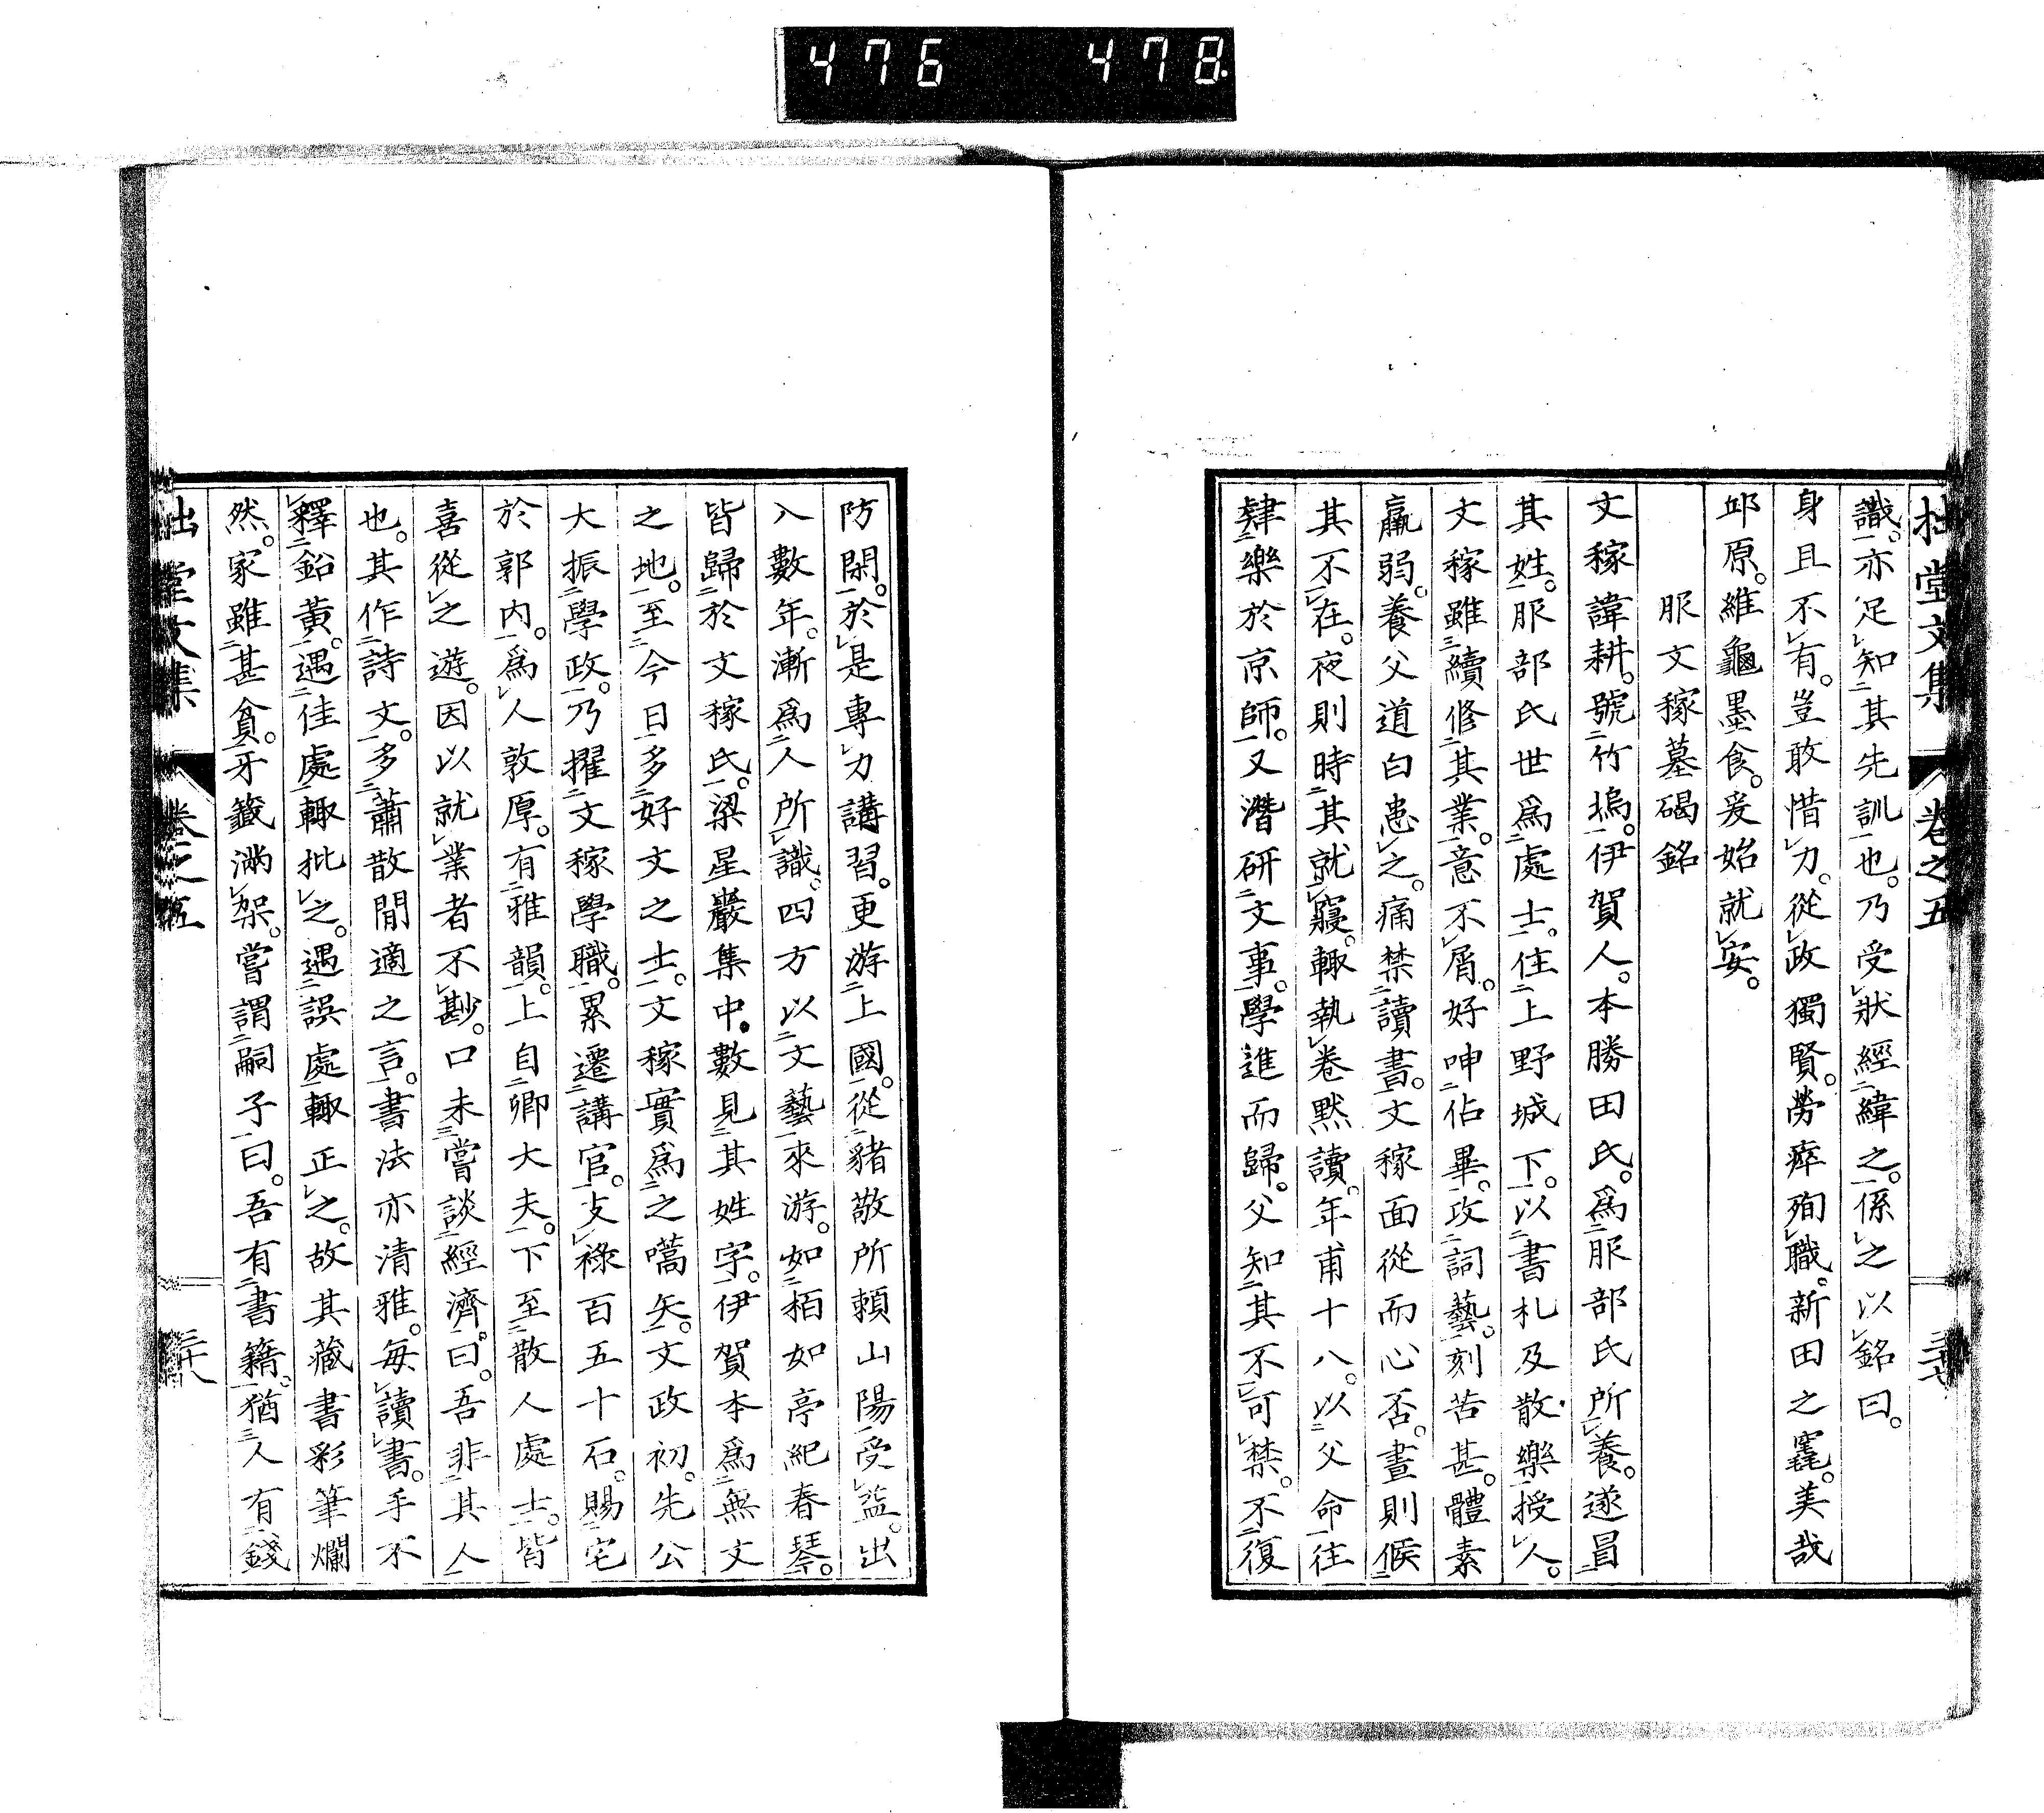 476 478
拙堂文集 卷之五
識。亦足知其先訓也。乃受狀經緯之。係之以銘曰。
身且不有。豈敢惜力。從政獨賢。勞瘁殉職。新田之窀。美哉
邱原。維龜墨食。爰始就安。
服文稼墓碣銘
文稼諱耕。號竹塢。伊賀人。本勝田氏。爲服部氏所養。遂冒
其姓。服部氏世爲處士。住上野城下。以書札及散樂授人。
文稼雖續修其業。意不屑。好呻佔畢。攻詞藝。刻苦甚。體素
羸弱。養父道白患之。痛禁讀書。文稼面從而心否。晝則候
其不在。夜則時其就寢。輒執卷默讀。年甫十八。以父命往
肄樂於京師。又潛研文事。學進而歸。父知其不可禁。不復
防閑。於是專力講習。更游上國。從豬敬所賴山陽受益。出
入數年。漸爲人所識。四方以文藝來游。如栢如亭紀春琴。
皆歸於文稼氏。梁星巖集中。數見其姓字。伊賀本爲無文
之地。至今日多好文之士。文稼實爲之嚆矢。文政初。先公
大振學政。乃擢文稼學職。累遷講官。支祿百五十石。賜宅
於郭內。爲人敦厚。有雅韻。上自卿大夫。下至散人處士。皆
喜從之遊。因以就業者不尠。口未嘗談經濟。曰。吾非其人
也。其作詩文。多蕭散閒適之言。書法亦清雅。每讀書。手不
釋鉛黃。遇佳處輒批之。遇誤處輒正之。故其藏書彩筆爛
然。家雖甚貧。牙籤滿架。嘗謂嗣子曰。吾有書籍。猶人有錢
拙堂文集 卷之五 三十八